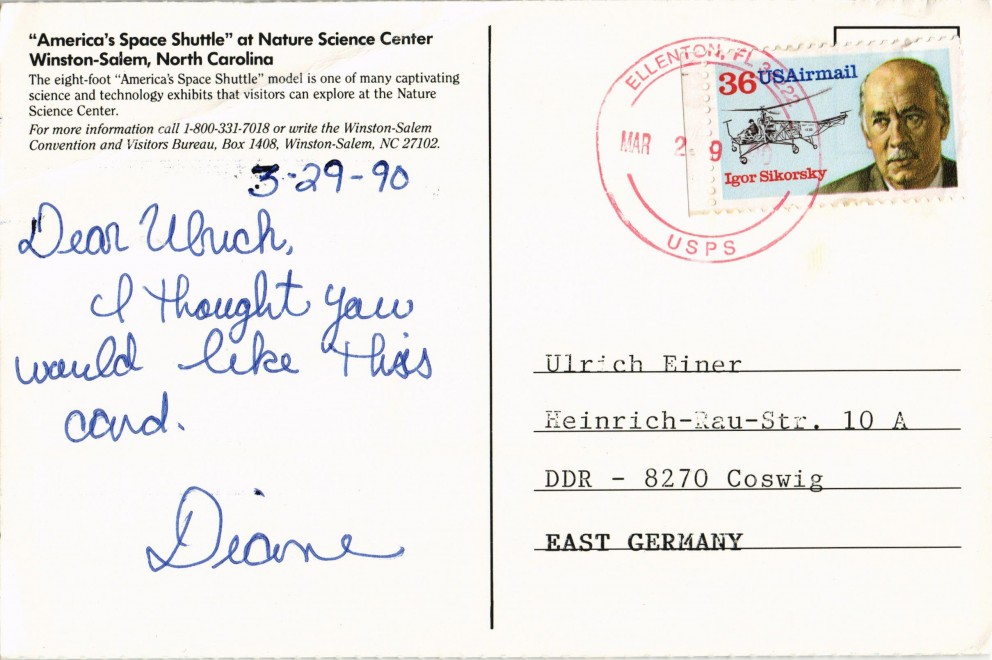 “America’s Space Shuttle” at Nature Science Center
Winston-Salem, North Carolina
The eight-foot “America’s Space Shuttle” model is one of many captivating
science and technology exhibits that visitors can explore at the Nature
Science Center.
For more information call 1-800-331-7018 or write the Winston-Salem
Convention and Visitors Bureau, Box 1408, Winston-Salem, NC 27102.
3-29-90
Dear Ulrich,
I thought you
would like this
card.
Diane
ELLENTON, FL
MAR 29
USPS
36 USAirmail
Igor Sikorsky
Ulrich Einer
Heinrich-Rau-Str. 10 A
DDR - 8270 Coswig
EAST GERMANY